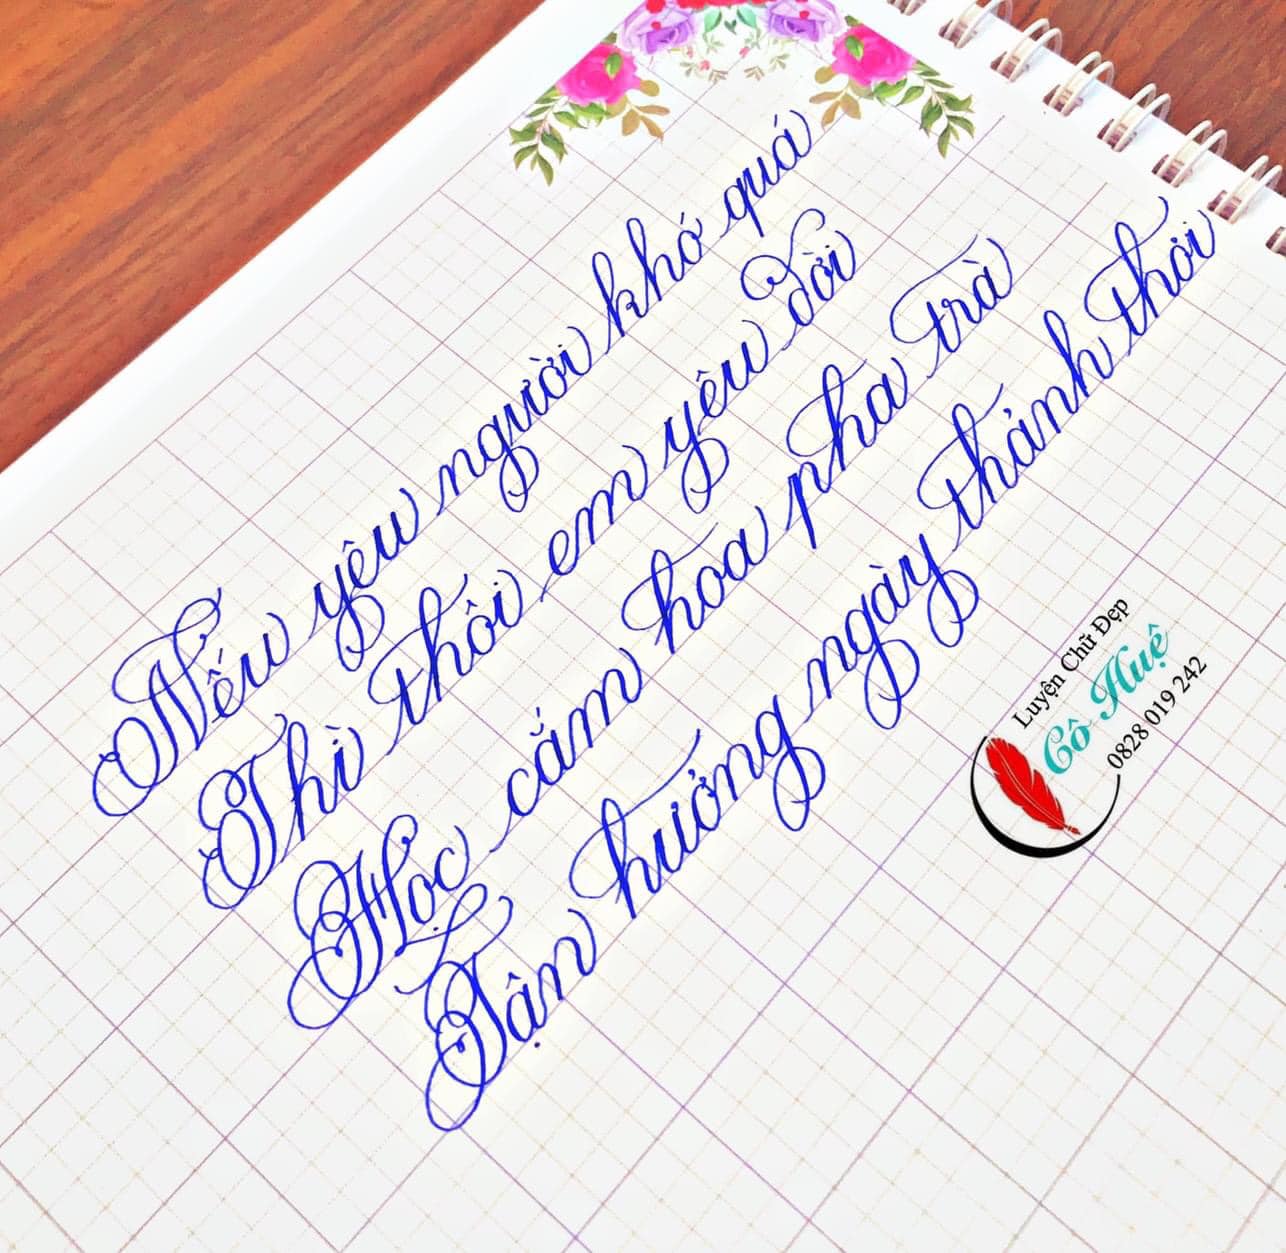 Nếu yêu người khó quá
Thì thôi em yêu đời
Học cắm hoa pha trà
Tận hưởng ngày thảnh thơi
Luyện Chữ Đẹp
Cô Huệ
0828 019 242